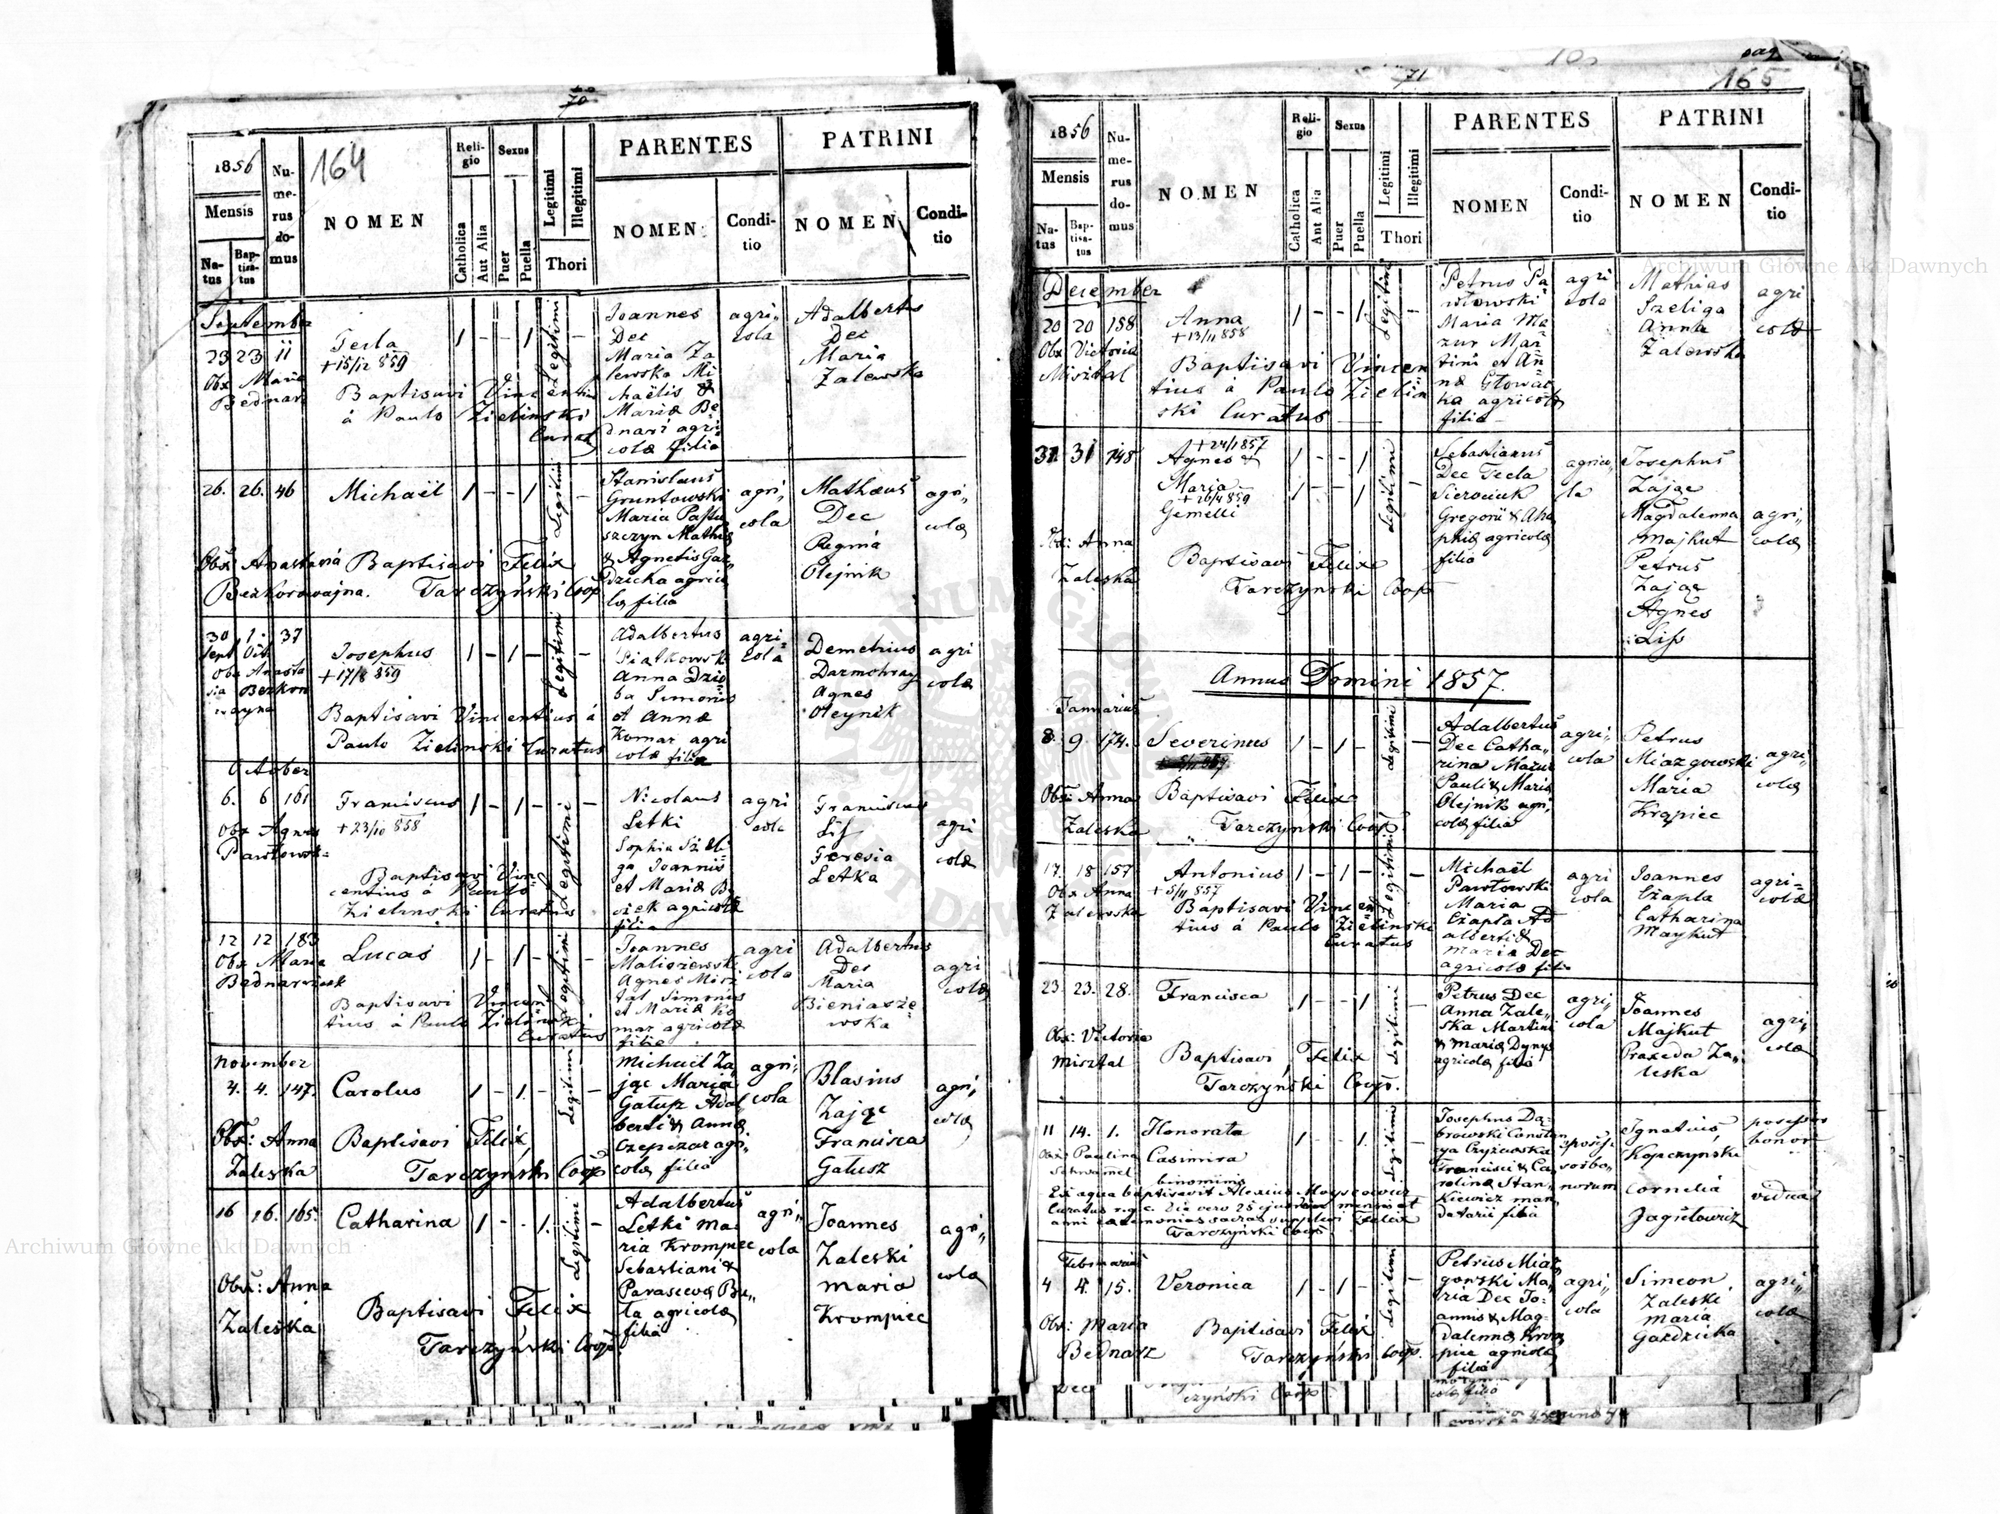 70
164
1856
Mensis
Natus
Baptisatus
Numerus domus
NOMEN
Religio
Catholica
Aut Alia
Sexus
Puer
Puella
Legitimi
Illegitimi
Thori
PARENTES
NOMEN
Conditio
PATRINI
NOMEN
Conditio
September
23 23 11
Obx Maria
Bednarz
Tecla
+15/12 859
Baptisavi Vincentius
à Paulo Zieliński
Curatus
1 - - 1 Legitimi -
Joannes
Dec
Maria Za
lewska Mi
chaëlis &
Mariæ Be
dnarz agri
colæ filia
agri
cola
Adalbertus
Dec
Maria
Zalewska
26. 26. 46
Michaël
1 - - 1 Legitimi -
Obx Anastasia Baptisavi Felix
Bezkorowajna. Tarczyński Coop
Stanislaus
Gruntowski
Maria Pastu
szczyn Mathiæ
& Agnetis Gaz
dzicka agrico
læ filia
agri
cola
Mathæus
Dec
Regina
Olejnik
agri
colæ
30 1. 37
Sept Oct.
Obx Anasta
sia Bezkoro
wayna
Josephus
+17/8 859
Baptisavi Vincentius à
Paulo Zielinski Curatus
1 - 1 - Legitimi -
Adalbertus
Piatkowski
Anna Dziu
ba Simonis
et Annæ
Komar agri
colæ filia
agri
cola
Demetrius
Darmohray
Agnes
Oleynik
agri
colæ
October
6. 6 161
Obx Agnes
Pawłowska
Franciscus
+23/10 858
Baptisavi Vin
centius à Paulo
Zielinski Curatus
1 - 1 - Legitimi -
Nicolaus
Letki
Sophia Szeli
ga Joannis
et Mariæ By
ziek agricolæ
filia
agri
cola
Franciscus
Lis
Teresia
Letka
agri
colæ
12 12 183
Obx Maria
Bednarczek
Lucas
Baptisavi Vincen
tius à Paulo Zieliński
Curatus
1 - 1 - Legitimi -
Joannes
Maliszewski
Agnes Misz
tal Simonis
et Mariæ Ko
mar agricolæ
filia
agri
cola
Adalbertus
Dec
Maria
Bieniasze
wska
agri
colæ
November
4. 4. 147.
Carolus
Obx: Anna Baptisavi Felix
Zaleska Tarczyński Coop
1 - 1 - Legitimi -
Michael Za
jąc Maria
Gałusz Adal
berti & Annæ
Czepczar agri
colæ filia
agri
cola
Blasius
Zając
Francisca
Gałusz
agri
colæ
16 16. 165.
Catharina
Obx: Anna
Zaleska
Baptisavi Felix
Tarczyński Coop.
1 - - 1. Legitimi -
Adalbertus
Letki Ma
ria Krompiec
Sebastiani &
Parascevæ Bu
ła agricolæ
filia
agri
cola
Joannes
Zaleski
Maria
Krompiec
agri
colæ
71
165
1856
Mensis
Natus
Baptisatus
Numerus domus
NOMEN
Religio
Catholica
Aut Alia
Sexus
Puer
Puella
Legitimi
Illegitimi
Thori
PARENTES
NOMEN
Conditio
PATRINI
NOMEN
Conditio
December
20 20 158
Obx Victoria
Misztal
Anna
+13/11 858
Baptisavi Vincen
tius à Paulo Zieliń
ski Curatus
1 - - 1 Legitimi -
Petrus Pa
włowski
Maria Ma
zur Mar
tini et An
næ Głowac
ka agricolæ
filia
agri
cola
Mathias
Szeliga
Anna
Zalewska
agri
colæ
31 31 148
+24/1 857
Agnes &
Maria
+26/4 859
Gemelli
Obx: Anna
Zaleska
Baptisavi Felix
Tarczynski Coop
1 - - 1 Legitimi -
1 - - 1 Legitimi -
Sebastianus
Dec Tecla
Sierociuk
Gregorii & Aga
phiæ agricolæ
filia
agrico
la
Josephus
Zając
Magdalenna
Majkut
Petrus
Zając
Agnes
Liss
agri
colæ
Annus Domini 1857.
Januarius
8. 9. 174.
Severinus
Obx: Anna
Zaleska
Baptisavi Felix
Tarczynski Coop.
1 - 1 - Legitimi -
Adalbertus
Dec Catha
rina Mazur
Pauli & Mariæ
Olejnik agri
colæ filia
agri
cola
Petrus
Miazgowski
Maria
Krąpiec
agri
colæ
17. 18 157
Obx Anna
Zalewska
Antonius
+5/11 857
Baptisavi Vincen
tius à Paulo Zielinski
Curatus
1 - 1 - Legitimi -
Michaël
Pawłowski
Maria
Czapla Ad
alberti &
Maria Dec
agricolæ filia
agri
cola
Joannes
Czapla
Catharina
Maykut
agri
colæ
23. 23. 28.
Francisca
Obx: Victoria
Misztal
Baptisavi Felix
Tarczyński Coop.
1 - - 1 Legitimi -
Petrus Dec
Anna Zale
ska Martini
& Mariæ Dynys
agricolæ filia
agri
cola
Joannes
Majkut
Praxeda Za
leska
agri
colæ
11 14. 1.
Obx Paulina
Schwammel
Honorata
Casimira
binomina
Ex aqua baptisavit Alexius Moyseowicz
Curatus r.g.c. die vero 25 ejusdem mensis et
anni cæremonias sacras supplevi Felix
Tarczyński Coop.
1 - - 1 Legitimi -
Josephus Da
browski Constan
cya Czyżewska
Francisci & Ca
rolinæ Stan
kiewicz man
datarii filia
possessor
bonorum
Ignatius
Kopczyński
Cornelia
Jagiełowicz
possessor
bonor
vidua
Februarius
4 4. 15.
Veronica
Obx: Maria
Bednarz
Baptisavi Felix
Tarczyński Coop.
1 - 1 - Legitimi -
Petrus Miaz
gowski Ma
ria Dec Jo
annis & Mag
dalennæ Krom
piec agricolæ
filia
agri
cola
Simeon
Zaleski
Maria
Gazdzicka
agri
colæ
Archiwum Główne Akt Dawnych
Archiwum Główne Akt Dawnych